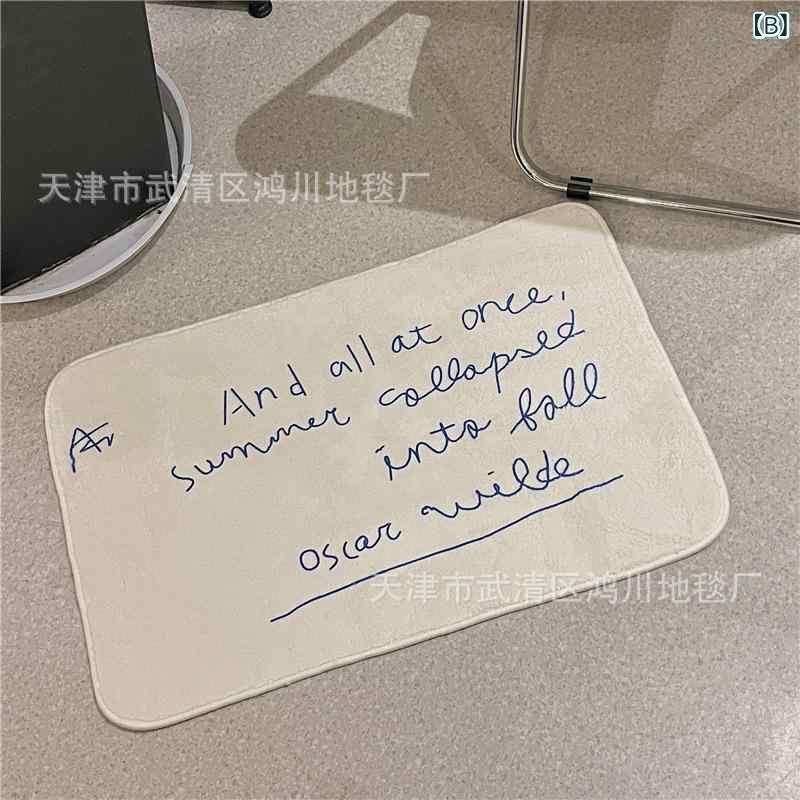 【B】
天津市武清区鸿川地毯厂
And all at once,
summer collapsed
into fall
oscar wilde
天津市武清区鸿川地毯厂